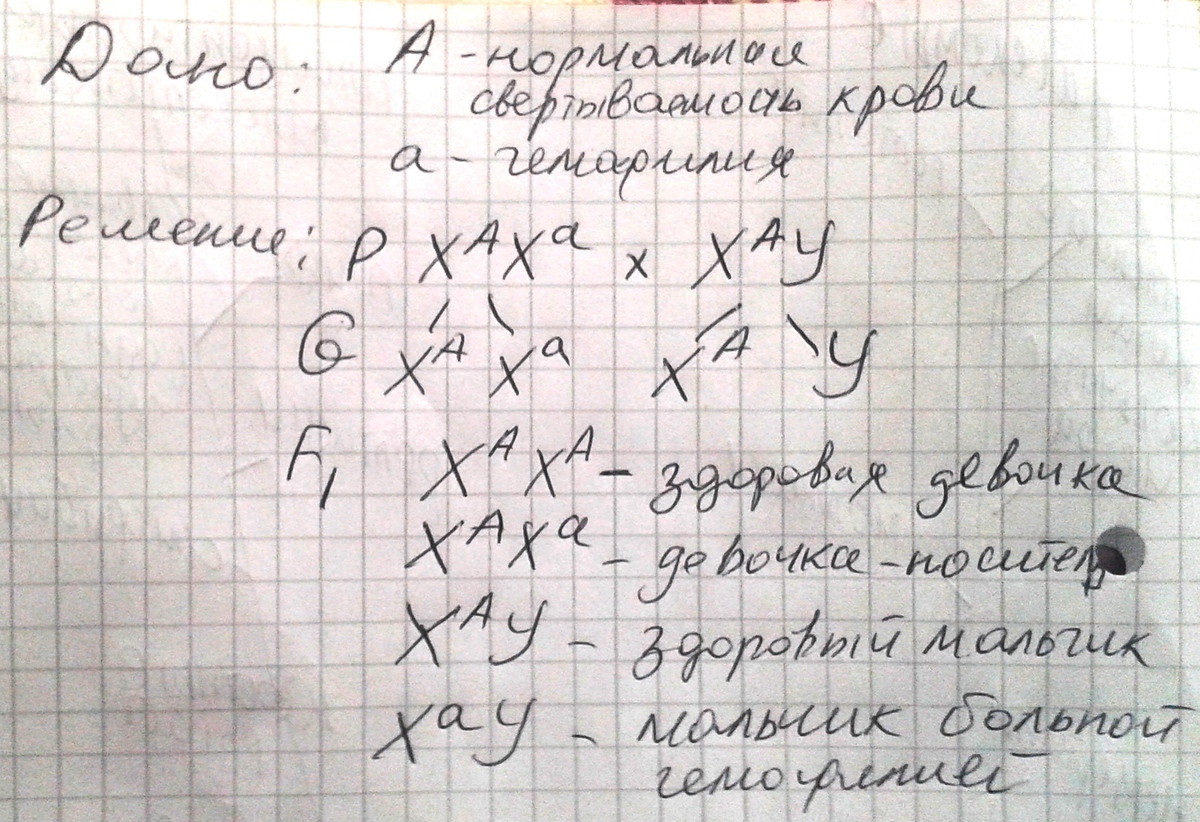 Дано: А - нормальная
свертываемость крови
а - гемофилия
Решение: Р X^A X^a x X^A У
G X^A X^a X^A У
F₁ X^A X^A - здоровая девочка
X^A X^a - девочка - носител
X^A У - здоровый мальчик
X^a У - мальчик больной
гемофилией